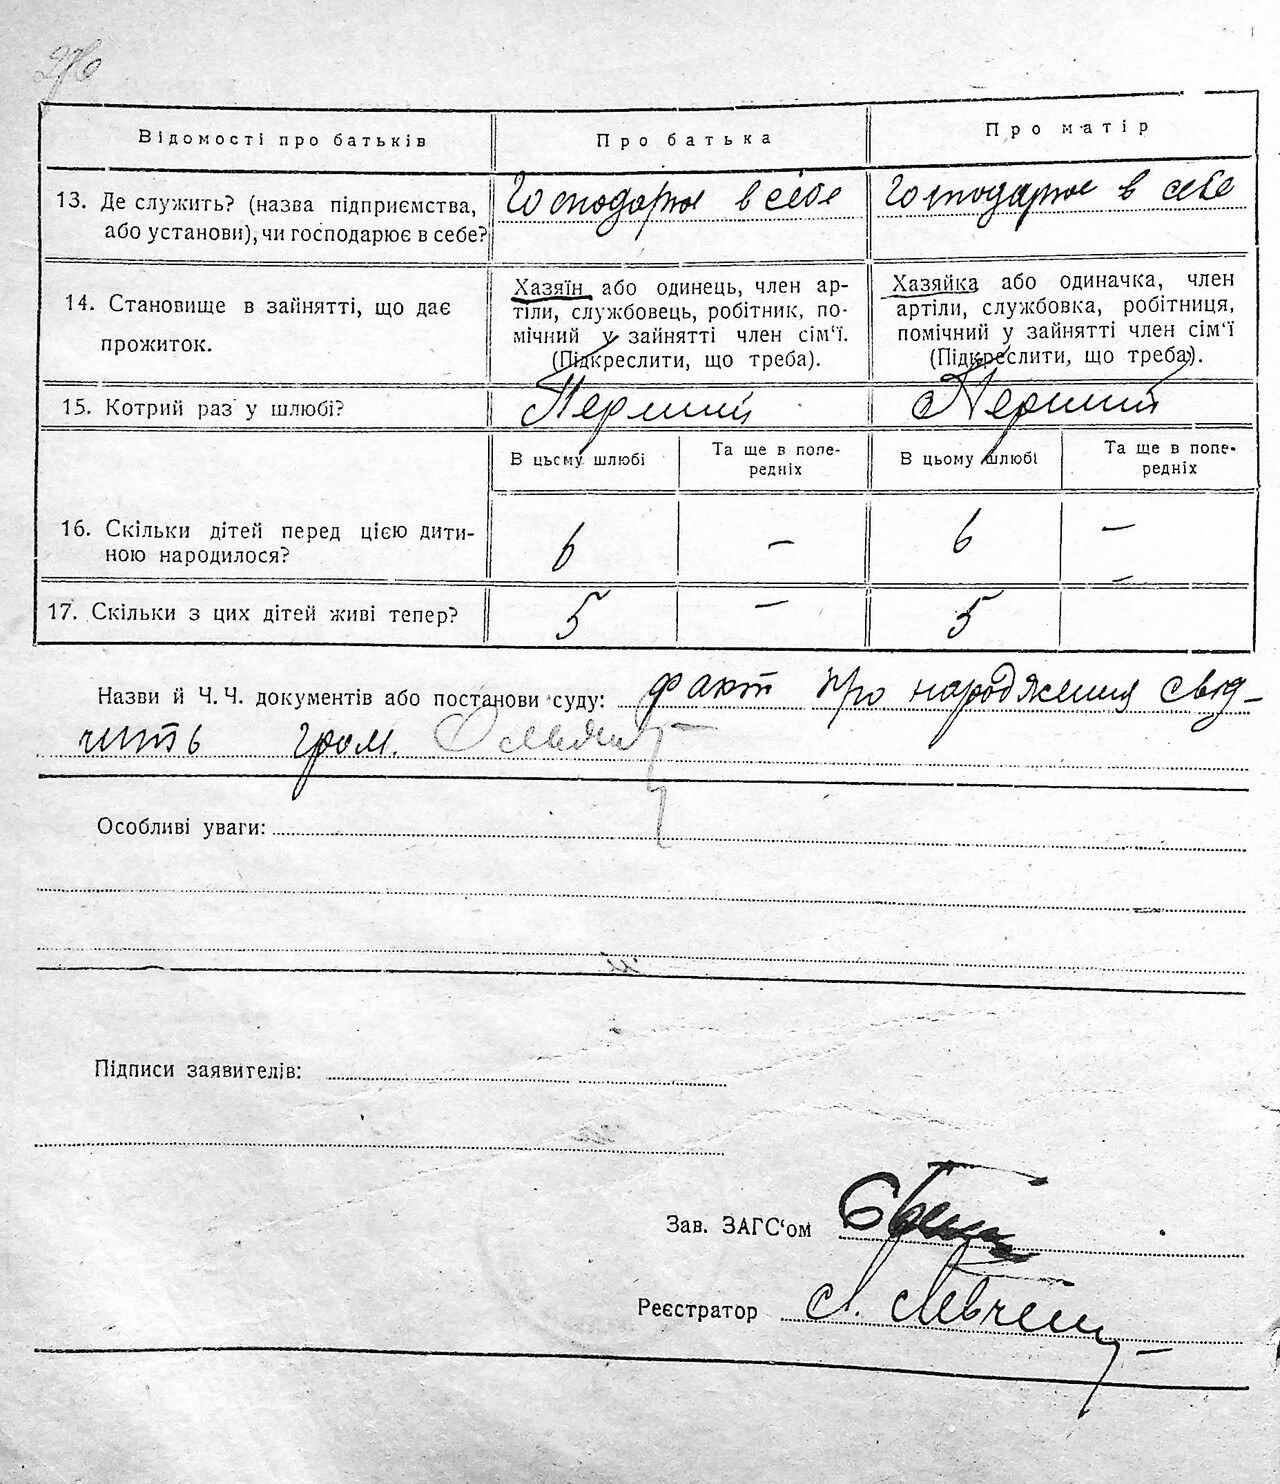 276
Відомості про батьків
Про батька
Про матір
13. Де служить? (назва підприємства,
або установи), чи господарює в себе?
Господарює в себе
Господарює в себе
14. Становище в зайнятті, що дає
прожиток.
Хазяїн або одинець, член ар-
тіли, службовець, робітник, по-
мічний у зайнятті член сім'ї.
(Підкреслити, що треба).
Хазяйка або одиначка, член
артіли, службовка, робітниця,
помічний у зайнятті член сім'ї
(Підкреслити, що треба).
15. Котрий раз у шлюбі?
Перший
Перший
В цьому шлюбі
Та ще в попе-
редніх
В цьому шлюбі
Та ще в попе-
редніх
16. Скільки дітей перед цією дити-
ною народилося?
6
—
6
—
17. Скільки з цих дітей живі тепер?
5
—
5
—
Назви й Ч.Ч. документів або постанови суду: факт про народження свід-
чить гром.
Особливі уваги:
Підписи заявителів:
Зав. ЗАГС'ом
Реєстратор Л. Левчен